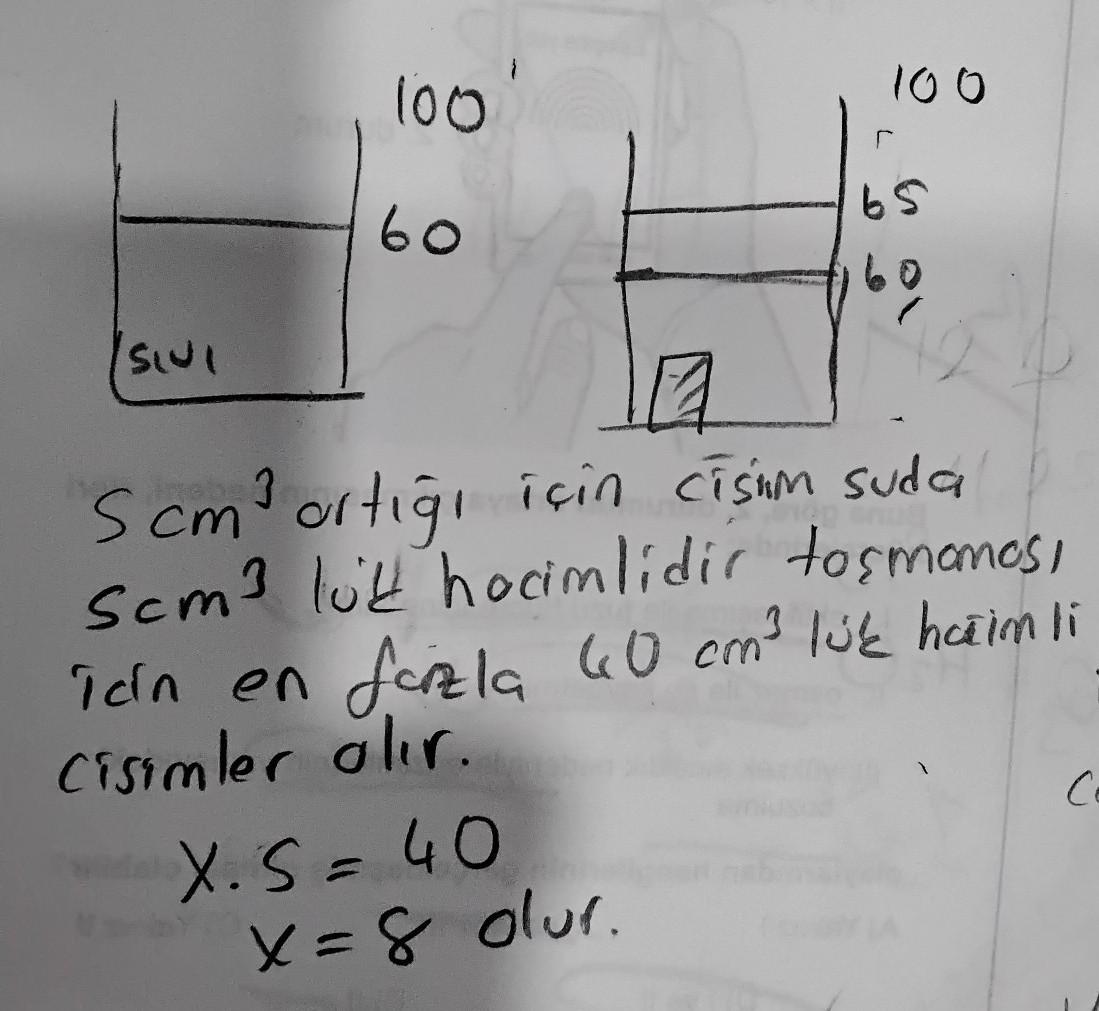 100
60
SIVI
100
65
60
5 cm³ artığı için cisim suda
5cm³ lük hacimlidir taşmaması
için en fazla 40 cm³ lük hacimli
cisimler alır.
X.5 = 40
X = 8 olur.